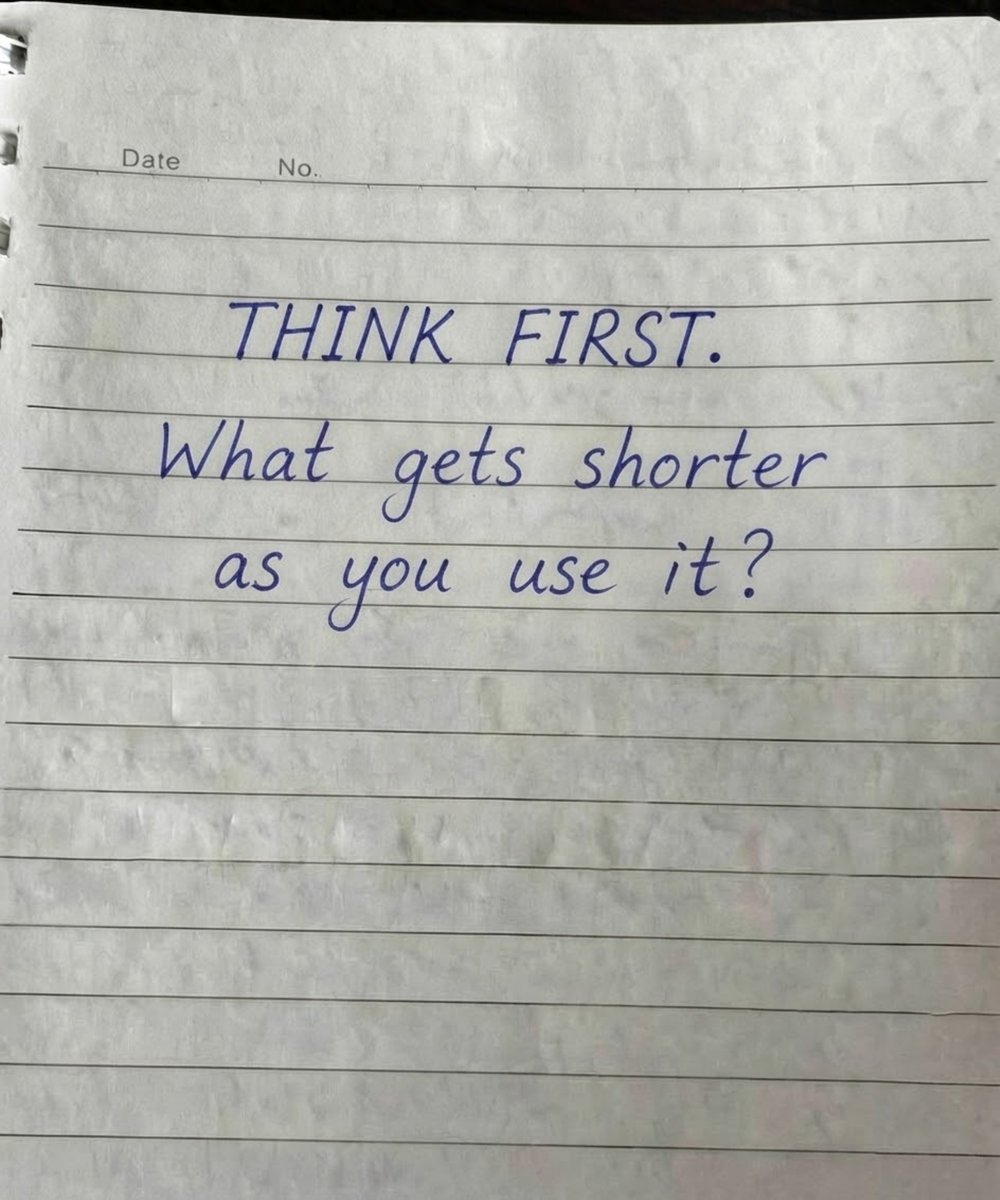 Date No.
THINK FIRST.
What gets shorter
as you use it?